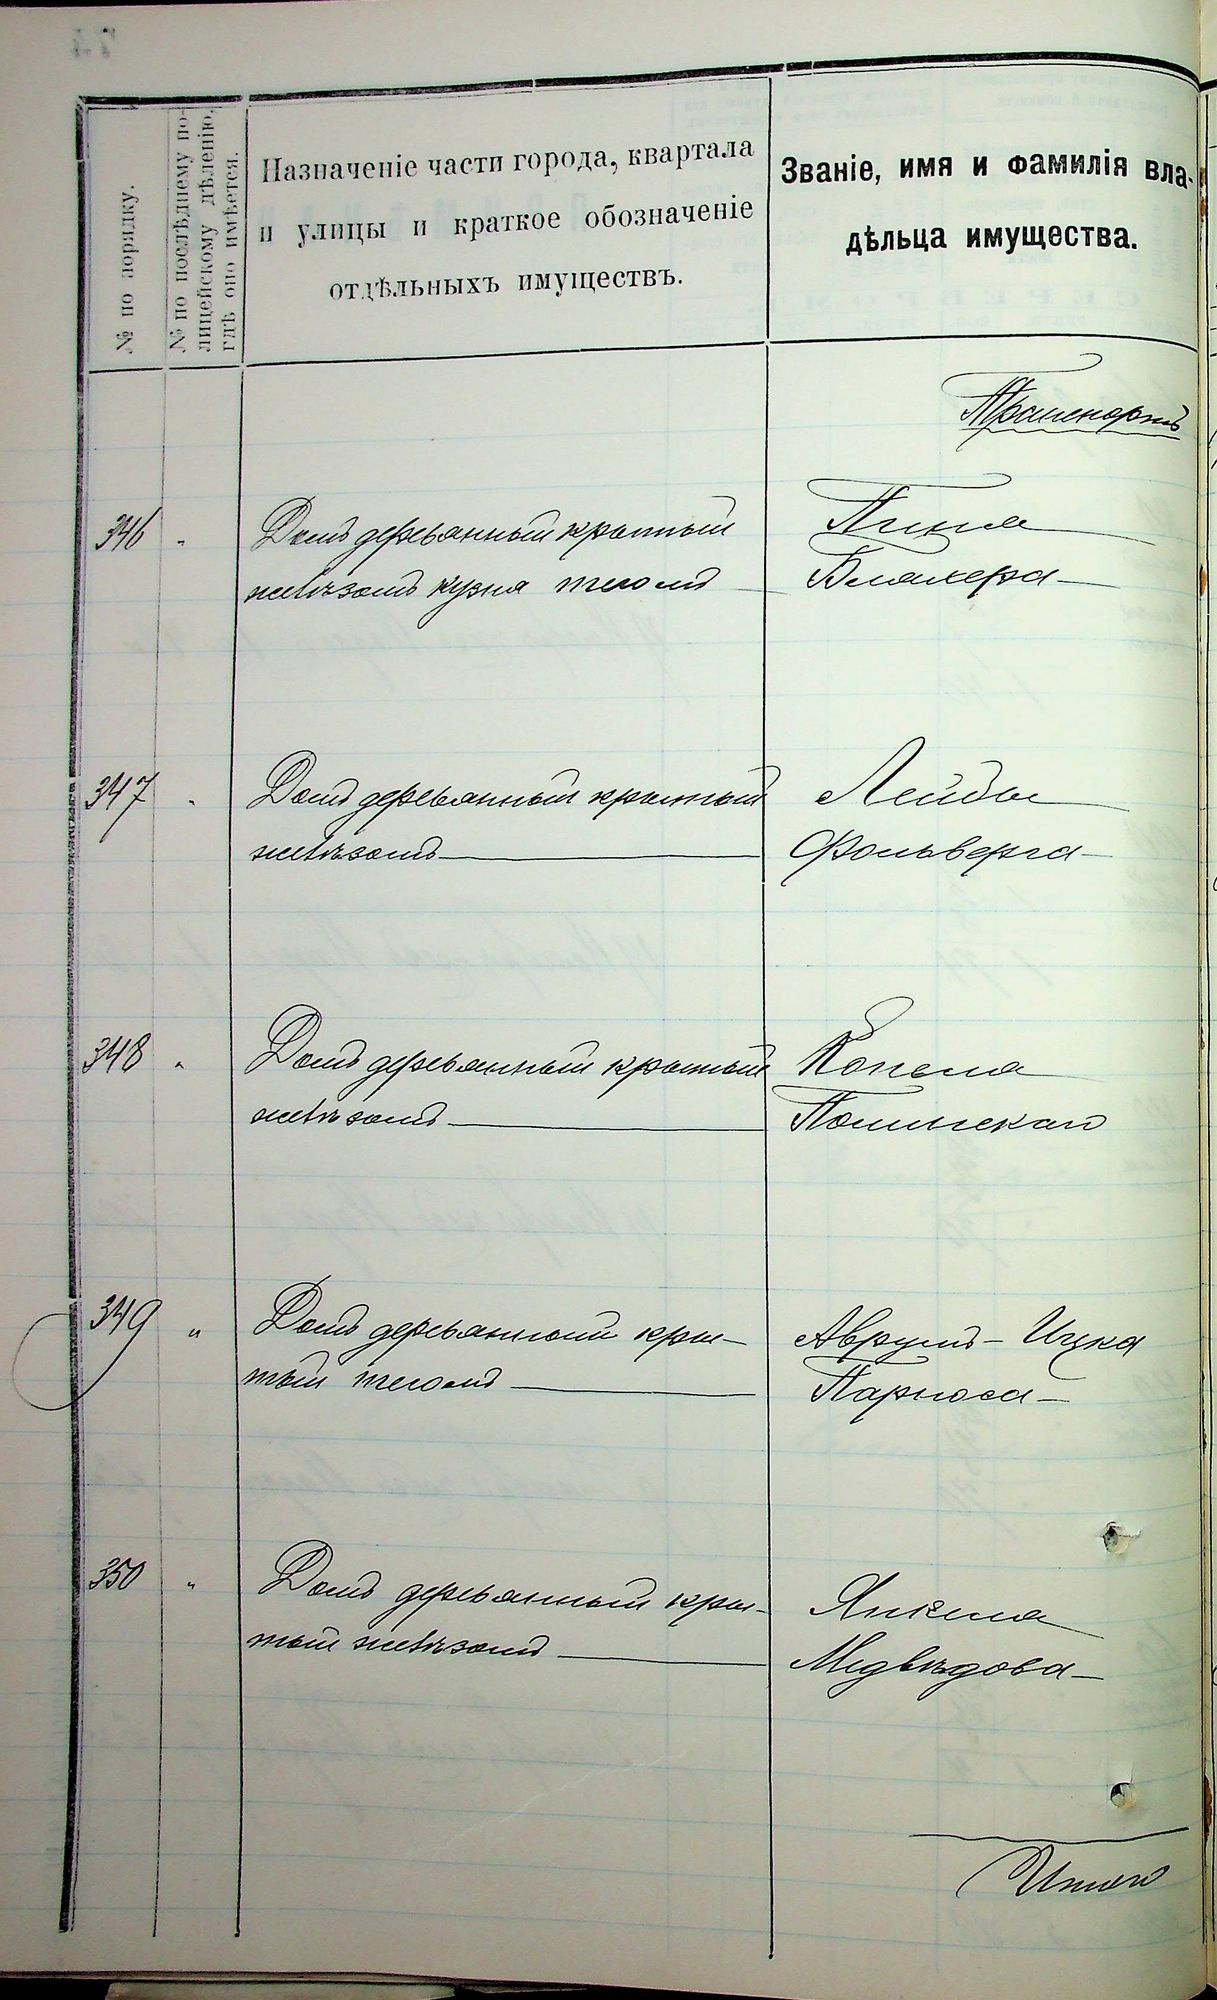 № по порядку.
№ по послѣднему по-
лицейскому дѣленію,
гдѣ оно имѣется.
Назначеніе части города, квартала
и улицы и краткое обозначеніе
отдѣльныхъ имуществъ.
Званіе, имя и фамилія вла-
дѣльца имущества.
Транспортъ
346 " Домъ деревянный крытый
желѣзомъ кузня толемъ
Пини
Бляхера
347 " Домъ деревянный крытый
желѣзомъ
Лейбы
Фольберга
348 " Домъ деревянный крытый
желѣзомъ
Копеля
349 " Домъ деревянный кры-
тый толемъ
Аврумъ-Ицка
Парноса
350 " Домъ деревянный кры-
тый желѣзомъ
Янкеля
Медвѣдова
Итого